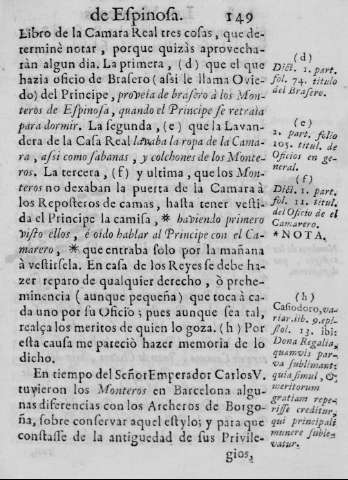 de Espinosa. 149
Libro de la Camara Real tres cosas, que de-
terminè notar, porque quizàs aprovecha-
ràn algun dia. La primera, (d) que el que
hazia oficio de Brasero (assi le llama Ovie-
do) del Principe, proveìa de brasero à los Mon-
teros de Espinosa, quando el Principe se retraìa
para dormir. La segunda, (e) que la Lavan-
dera de la Casa Real lavaba la ropa de la Cama-
ra, assi como sabanas, y colchones de los Monte-
ros. La tercera, (f) y ultima, que los Mon-
teros no dexaban la puerta de la Camara à
los Reposteros de camas, hasta tener vesti-
da el Principe la camisa, * haviendo primero
visto ellos, è oìdo hablar al Principe con el Ca-
marero, * que entraba solo por la mañana
à vestirsela. En casa de los Reyes se debe ha-
zer reparo de qualquier derecho, ò prehe-
minencia (aunque pequeña) que toca à ca-
da uno por su Oficio; pues aunque sea tal,
realça los meritos de quien lo goza. (h) Por
esta causa me pareciò hazer memoria de lo
dicho.
En tiempo del Señor Emperador Carlos V.
tuvieron los Monteros en Barcelona algu-
nas diferencias con los Archeros de Borgo-
ña, sobre conservar aquel estylo; y para que
constasse de la antiguedad de sus Privile-
gios,
(d)
Dict. 1. part.
fol. 74. titulo
del Brasero.
(e)
2. part. folio
105. titul. de
Oficios en ge-
neral.
(f)
Dict. 1. part.
fol. 11. titul.
del Oficio de el
Camarero.
*NOTA.
(h)
Casiodoro, va-
riar. lib. 9. epis-
tol. 13. ibi:
Dona Regalia,
quamvis par-
va sublimant:
quia simul, &
meritorum
gratiam repe-
risse creditur,
qui principali
munere suble-
vatur.